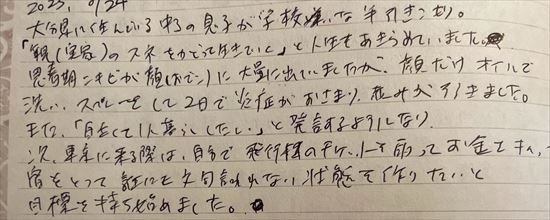 2023. 8/24
大分県に住んでいる中3の息子が学校嫌いな半引きこもり。
「親(実家)のスネをかじって生きていく」と人生をあきらめていました。
思春期ニキビが顔(おでこ)に大量に出ていましたが、顔だけオイルで
洗い、スプレーをして2日で炎症がおさまり、赤みが引きました。
また、「自立して1人暮らししたい。」と発言するようになり、
次、東京に来る際は、自分で飛行機のチケットを取ってお金を払い、
宿をとって誰にも文句言われない状態を作りたいと
目標を持ち始めました。